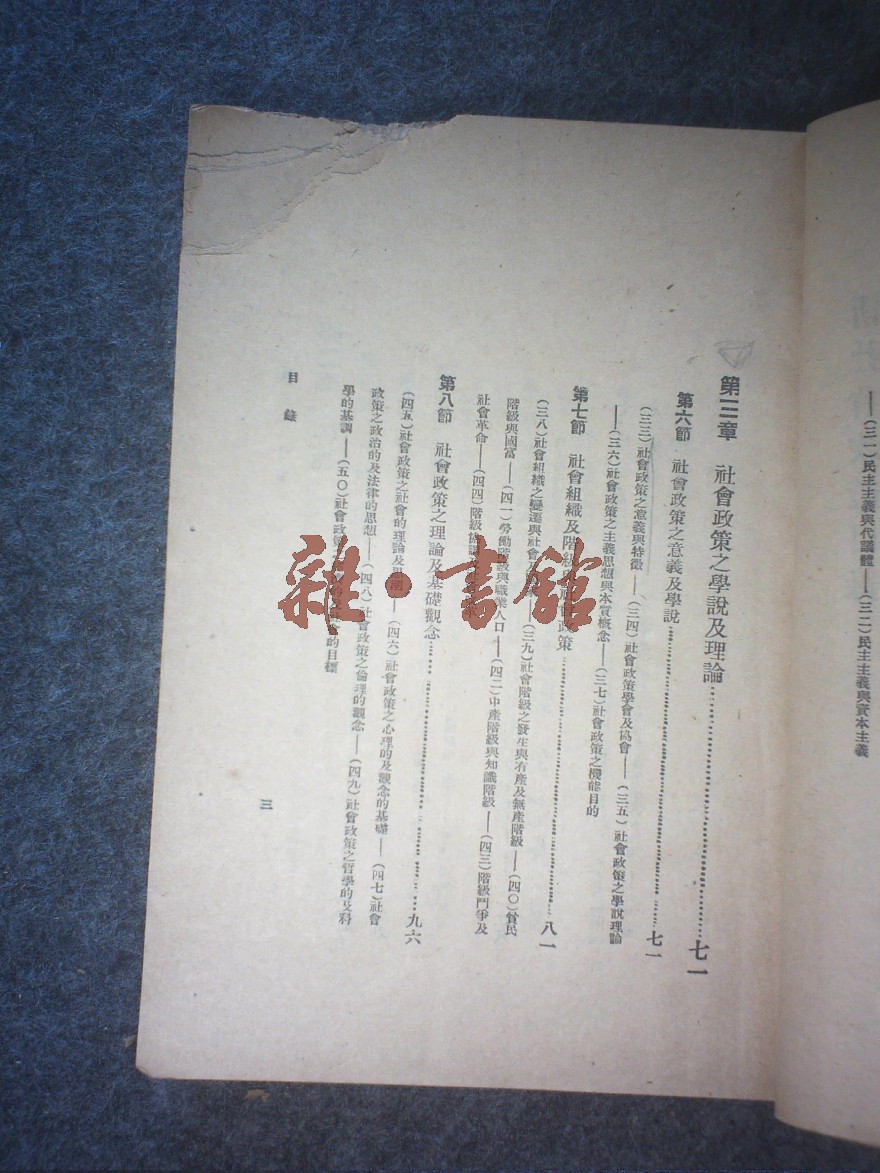 ——(三一)民主主義與代議體——(三二)民主主義與資本主義
第三章 社會政策之學說及理論……七一
第六節 社會政策之意義及學說……七一
(三三)社會政策之意義與特徵——(三四)社會政策學會及協會——(三五)社會政策之學說理論
——(三六)社會政策之主義思想與本質概念——(三七)社會政策之機能目的
第七節 社會組織及階級 社會政策……八一
(三八)社會組織之變遷與社會 ——(三九)社會階級之發生與有產及無產階級——(四〇)貧民
階級與國富——(四一)勞働階級與職業人口——(四二)中產階級與知識階級——(四三)階級鬥爭及
社會革命——(四四)階級協調
第八節 社會政策之理論及基礎觀念……九六
(四五)社會政策之社會的理論及思潮——(四六)社會政策之心理的及觀念的基礎——(四七)社會
政策之政治的及法律的思想——(四八)社會政策之倫理的觀念——(四九)社會政策之哲學的及科
學的基調——(五〇)社會政策之 的目標
目錄
三
雜·書館